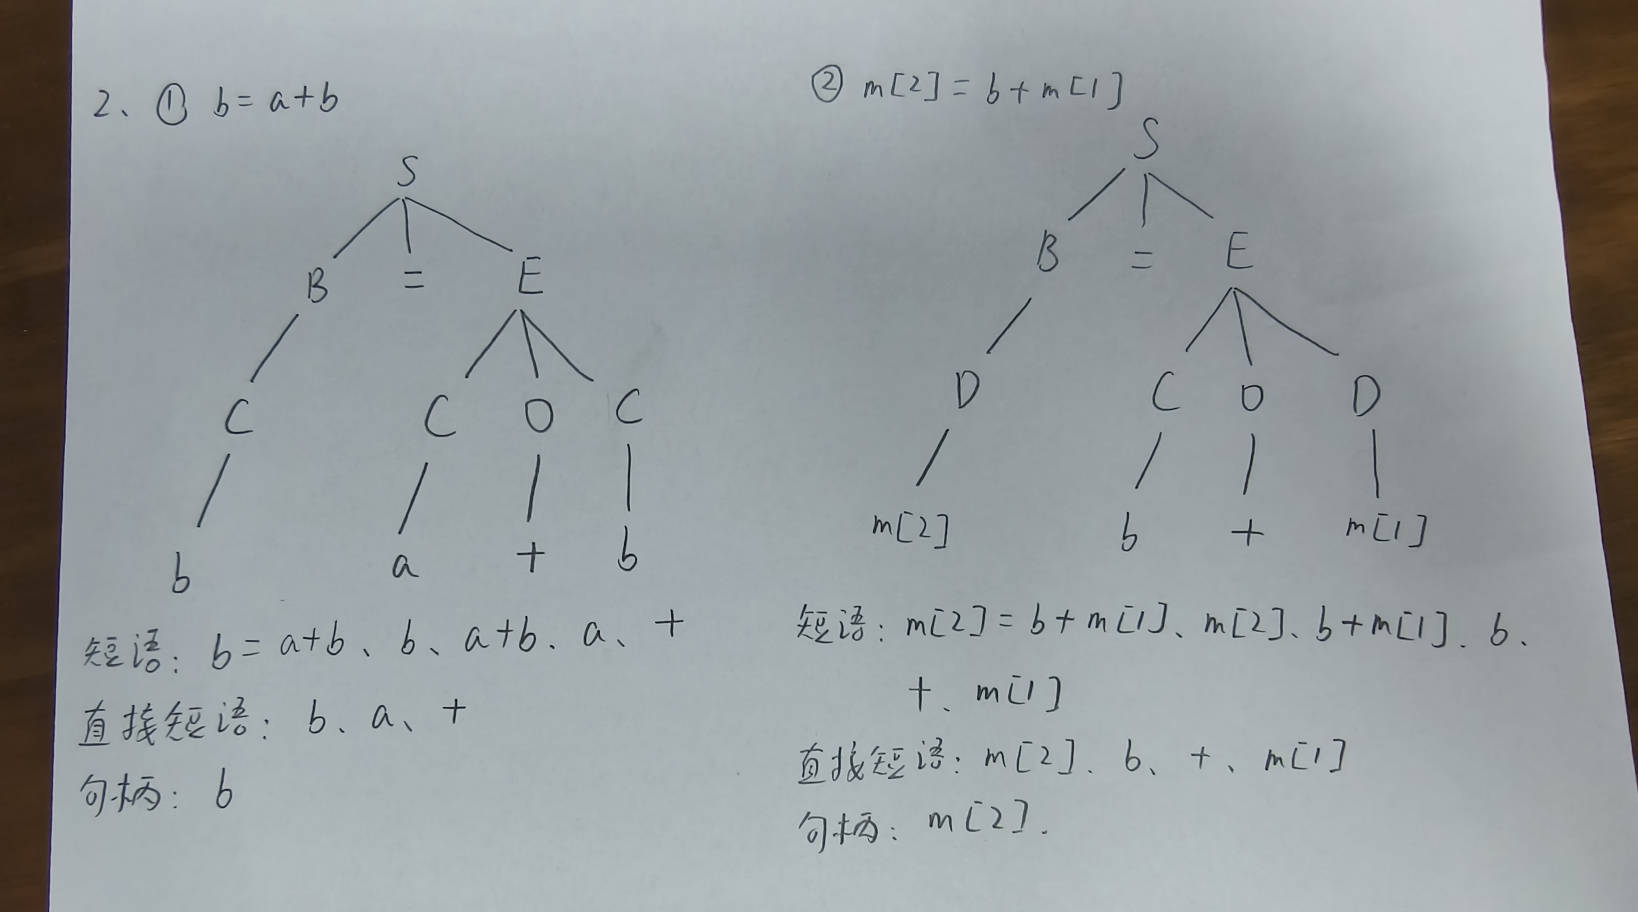 2、① b=a+b
S
B = E
C C O C
b a + b
短语：b=a+b、b、a+b、a、+
直接短语：b、a、+
句柄：b
② m[2]=b+m[1]
S
B = E
D C O D
m[2] b + m[1]
短语：m[2]=b+m[1]、m[2]、b+m[1]、b、
+、m[1]
直接短语：m[2]、b、+、m[1]
句柄：m[2].